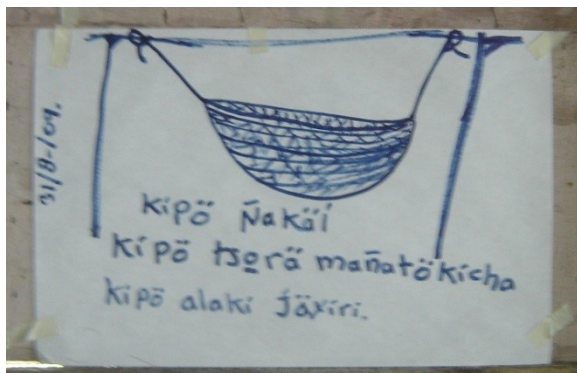 31/8-/09.
kipö ñakäi
kipö tso̱rä mañatökicha
kipö alaki jäxiri.